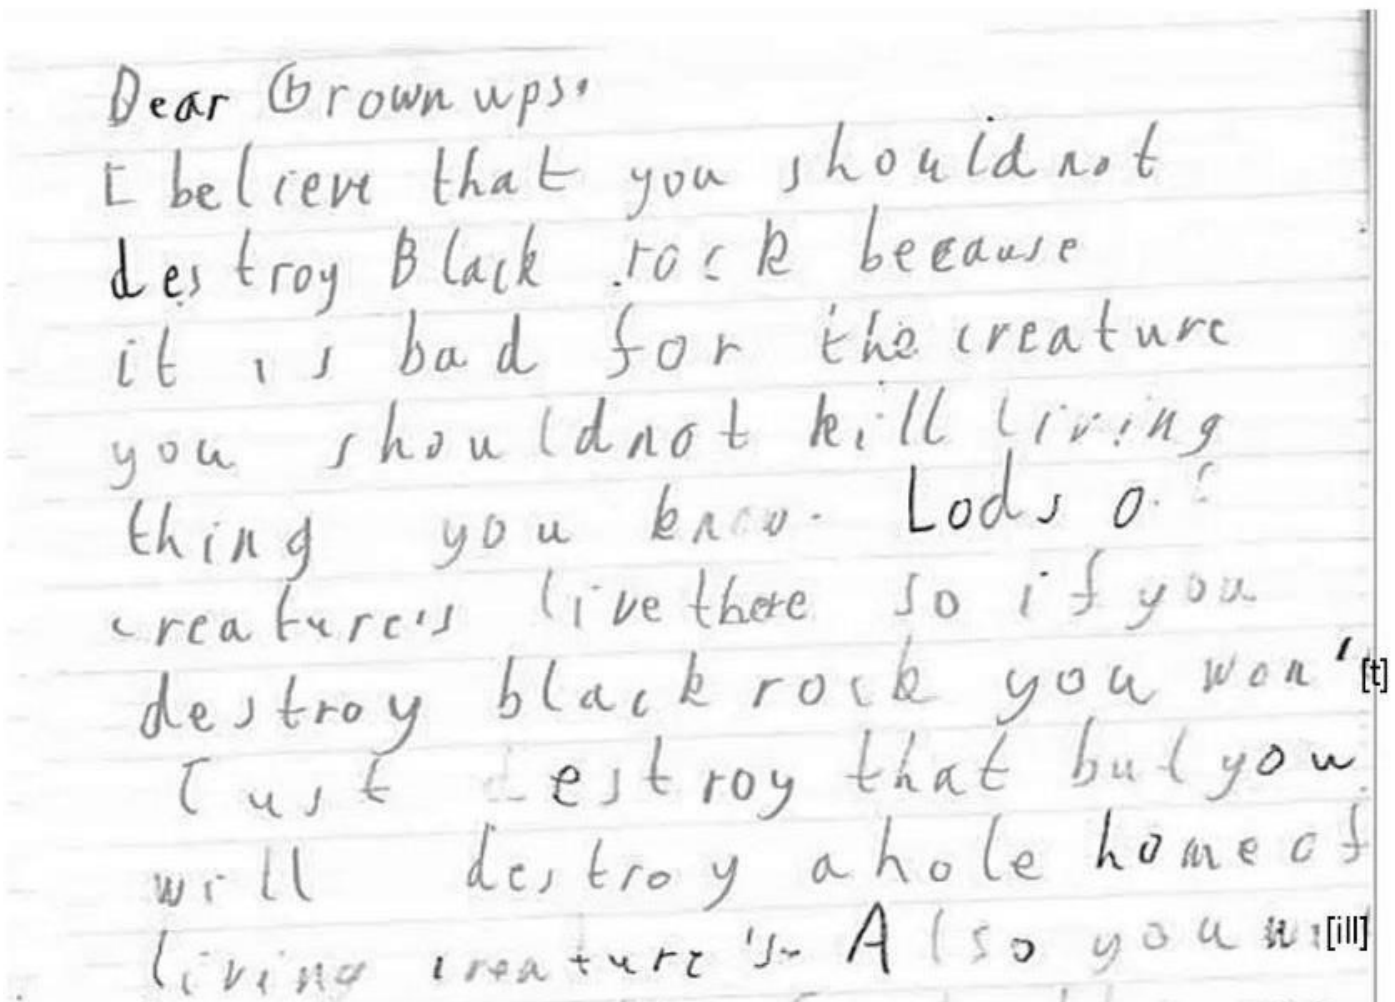 Dear Grown ups.
I believe that you should not
destroy Black rock because
it is bad for the creature
you should not kill living
thing you know. Lods of
creature's live there so if you
destroy black rock you won'[t]
Just destroy that but you
will destroy a hole home of
living creature's. Also you w[ill]